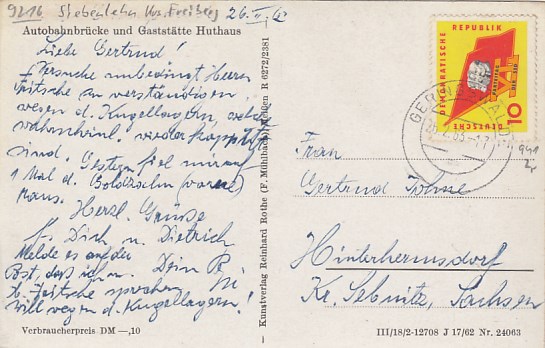 9216 Siebenlehn Krs. Freiberg 26. II. 63
Autobahnbrücke und Gaststätte Huthaus
Liebe Gertrud!
Versuche unbedingt Herrn
zu verständigen
wegen d. Kugellagern,
wahrscheinl. wieder kaputt
sind. Gestern fiel mir auf
1 Mal d. Goldzahn
raus.
Herzl. Grüsse
Dich u. Dietrich
Melde es auf der
Post, daß ich m. Dein
sprechen
will wegen d. Kugellagern!
Verbraucherpreis DM —,10
Kunstverlag Reinhard Rothe (F. Mühlhaus) Meißen R 6272/2381
1
DEUTSCHE DEMOKRATISCHE REPUBLIK
10
Frau
Gertrud
Hinterhermsdorf
Kr. Sebnitz, Sachsen
III/18/2-12708 J 17/62 Nr. 24063